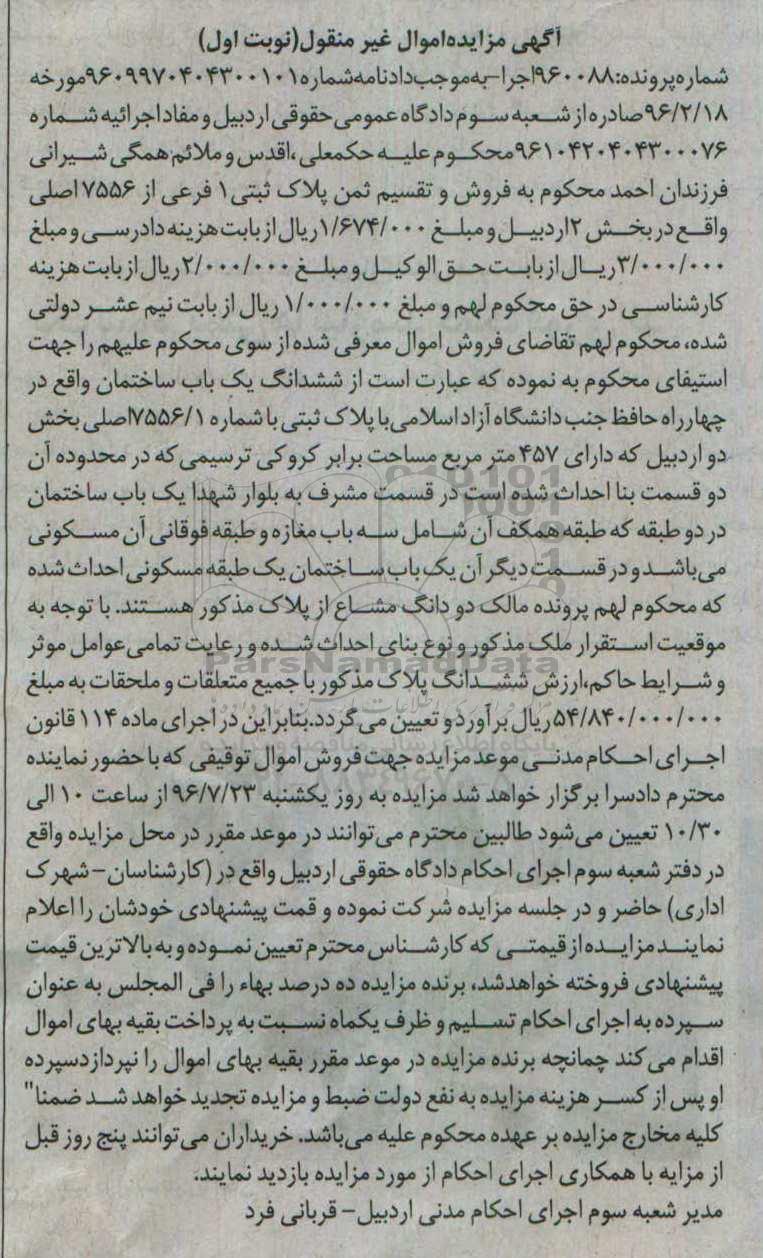 آگهی مزایده‌اموال غیر منقول(نوبت اول)
شماره‌پرونده:۹۶۰۰۸۸اجرا-به‌موجب‌دادنامه‌شماره۹۶۰۹۹۷۰۴۰۴۳۰۰۱۰۱مورخه
۹۶/۲/۱۸صادره از شعبه سوم دادگاه عمومی حقوقی اردبیل و مفاد اجرائیه شماره
۹۶۱۰۴۲۰۴۰۴۳۰۰۰۷۶محکوم علیه حکمعلی ،اقدس و ملائم همگی شیرانی
فرزندان احمد محکوم به فروش و تقسیم ثمن پلاک ثبتی ۱ فرعی از ۷۵۵۶ اصلی
واقع در بخش ۲اردبیل و مبلغ ۱/۶۷۴/۰۰۰ریال از بابت هزینه دادرسی و مبلغ
۳/۰۰۰/۰۰۰ریال از بابت حق الوکیل و مبلغ ۲/۰۰۰/۰۰۰ریال از بابت هزینه
کارشناسی در حق محکوم لهم و مبلغ ۱/۰۰۰/۰۰۰ ریال از بابت نیم عشر دولتی
شده، محکوم لهم تقاضای فروش اموال معرفی شده از سوی محکوم علیهم را جهت
استیفای محکوم به نموده که عبارت است از ششدانگ یک باب ساختمان واقع در
چهارراه حافظ جنب دانشگاه آزاد اسلامی با پلاک ثبتی با شماره ۷۵۵۶/۱اصلی بخش
دو اردبیل که دارای ۴۵۷ متر مربع مساحت برابر کروکی ترسیمی که در محدوده آن
دو قسمت بنا احداث شده است در قسمت مشرف به بلوار شهدا یک باب ساختمان
در دو طبقه که طبقه همکف آن شامل سه باب مغازه و طبقه فوقانی آن مسکونی
می‌باشد و در قسمت دیگر آن یک باب ساختمان یک طبقه مسکونی احداث شده
که محکوم لهم پرونده مالک دو دانگ مشاع از پلاک مذکور هستند. با توجه به
موقعیت استقرار ملک مذکور و نوع بنای احداث شده و رعایت تمامی عوامل موثر
و شرایط حاکم،ارزش ششدانگ پلاک مذکور با جمیع متعلقات و ملحقات به مبلغ
۵۴/۸۴۰/۰۰۰/۰۰۰ریال برآورد و تعیین می گردد.بنابراین در اجرای ماده ۱۱۴ قانون
اجرای احکام مدنی موعد مزایده جهت فروش اموال توقیفی که با حضور نماینده
محترم دادسرا برگزار خواهد شد مزایده به روز یکشنبه ۹۶/۷/۲۳ از ساعت ۱۰ الی
۱۰/۳۰ تعیین می‌شود طالبین محترم می‌توانند در موعد مقرر در محل مزایده واقع
در دفتر شعبه سوم اجرای احکام دادگاه حقوقی اردبیل واقع در (کارشناسان-شهرک
اداری) حاضر و در جلسه مزایده شرکت نموده و قمت پیشنهادی خودشان را اعلام
نمایند مزایده از قیمتی که کارشناس محترم تعیین نموده و به بالاترین قیمت
پیشنهادی فروخته خواهدشد، برنده مزایده ده درصد بهاء را فی المجلس به عنوان
سپرده به اجرای احکام تسلیم و ظرف یکماه نسبت به پرداخت بقیه بهای اموال
اقدام می کند چمانچه برنده مزایده در موعد مقرر بقیه بهای اموال را نپردازدسپرده
او پس از کسر هزینه مزایده به نفع دولت ضبط و مزایده تجدید خواهد شد ضمنا"
کلیه مخارج مزایده بر عهده محکوم علیه می‌باشد. خریداران می‌توانند پنج روز قبل
از مزایه با همکاری اجرای احکام از مورد مزایده بازدید نمایند.
مدیر شعبه سوم اجرای احکام مدنی اردبیل- قربانی فرد
ParsNamadData